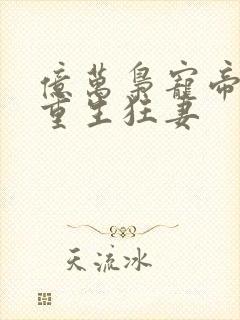 億萬梟寵帝
重生狂妻
天流冰